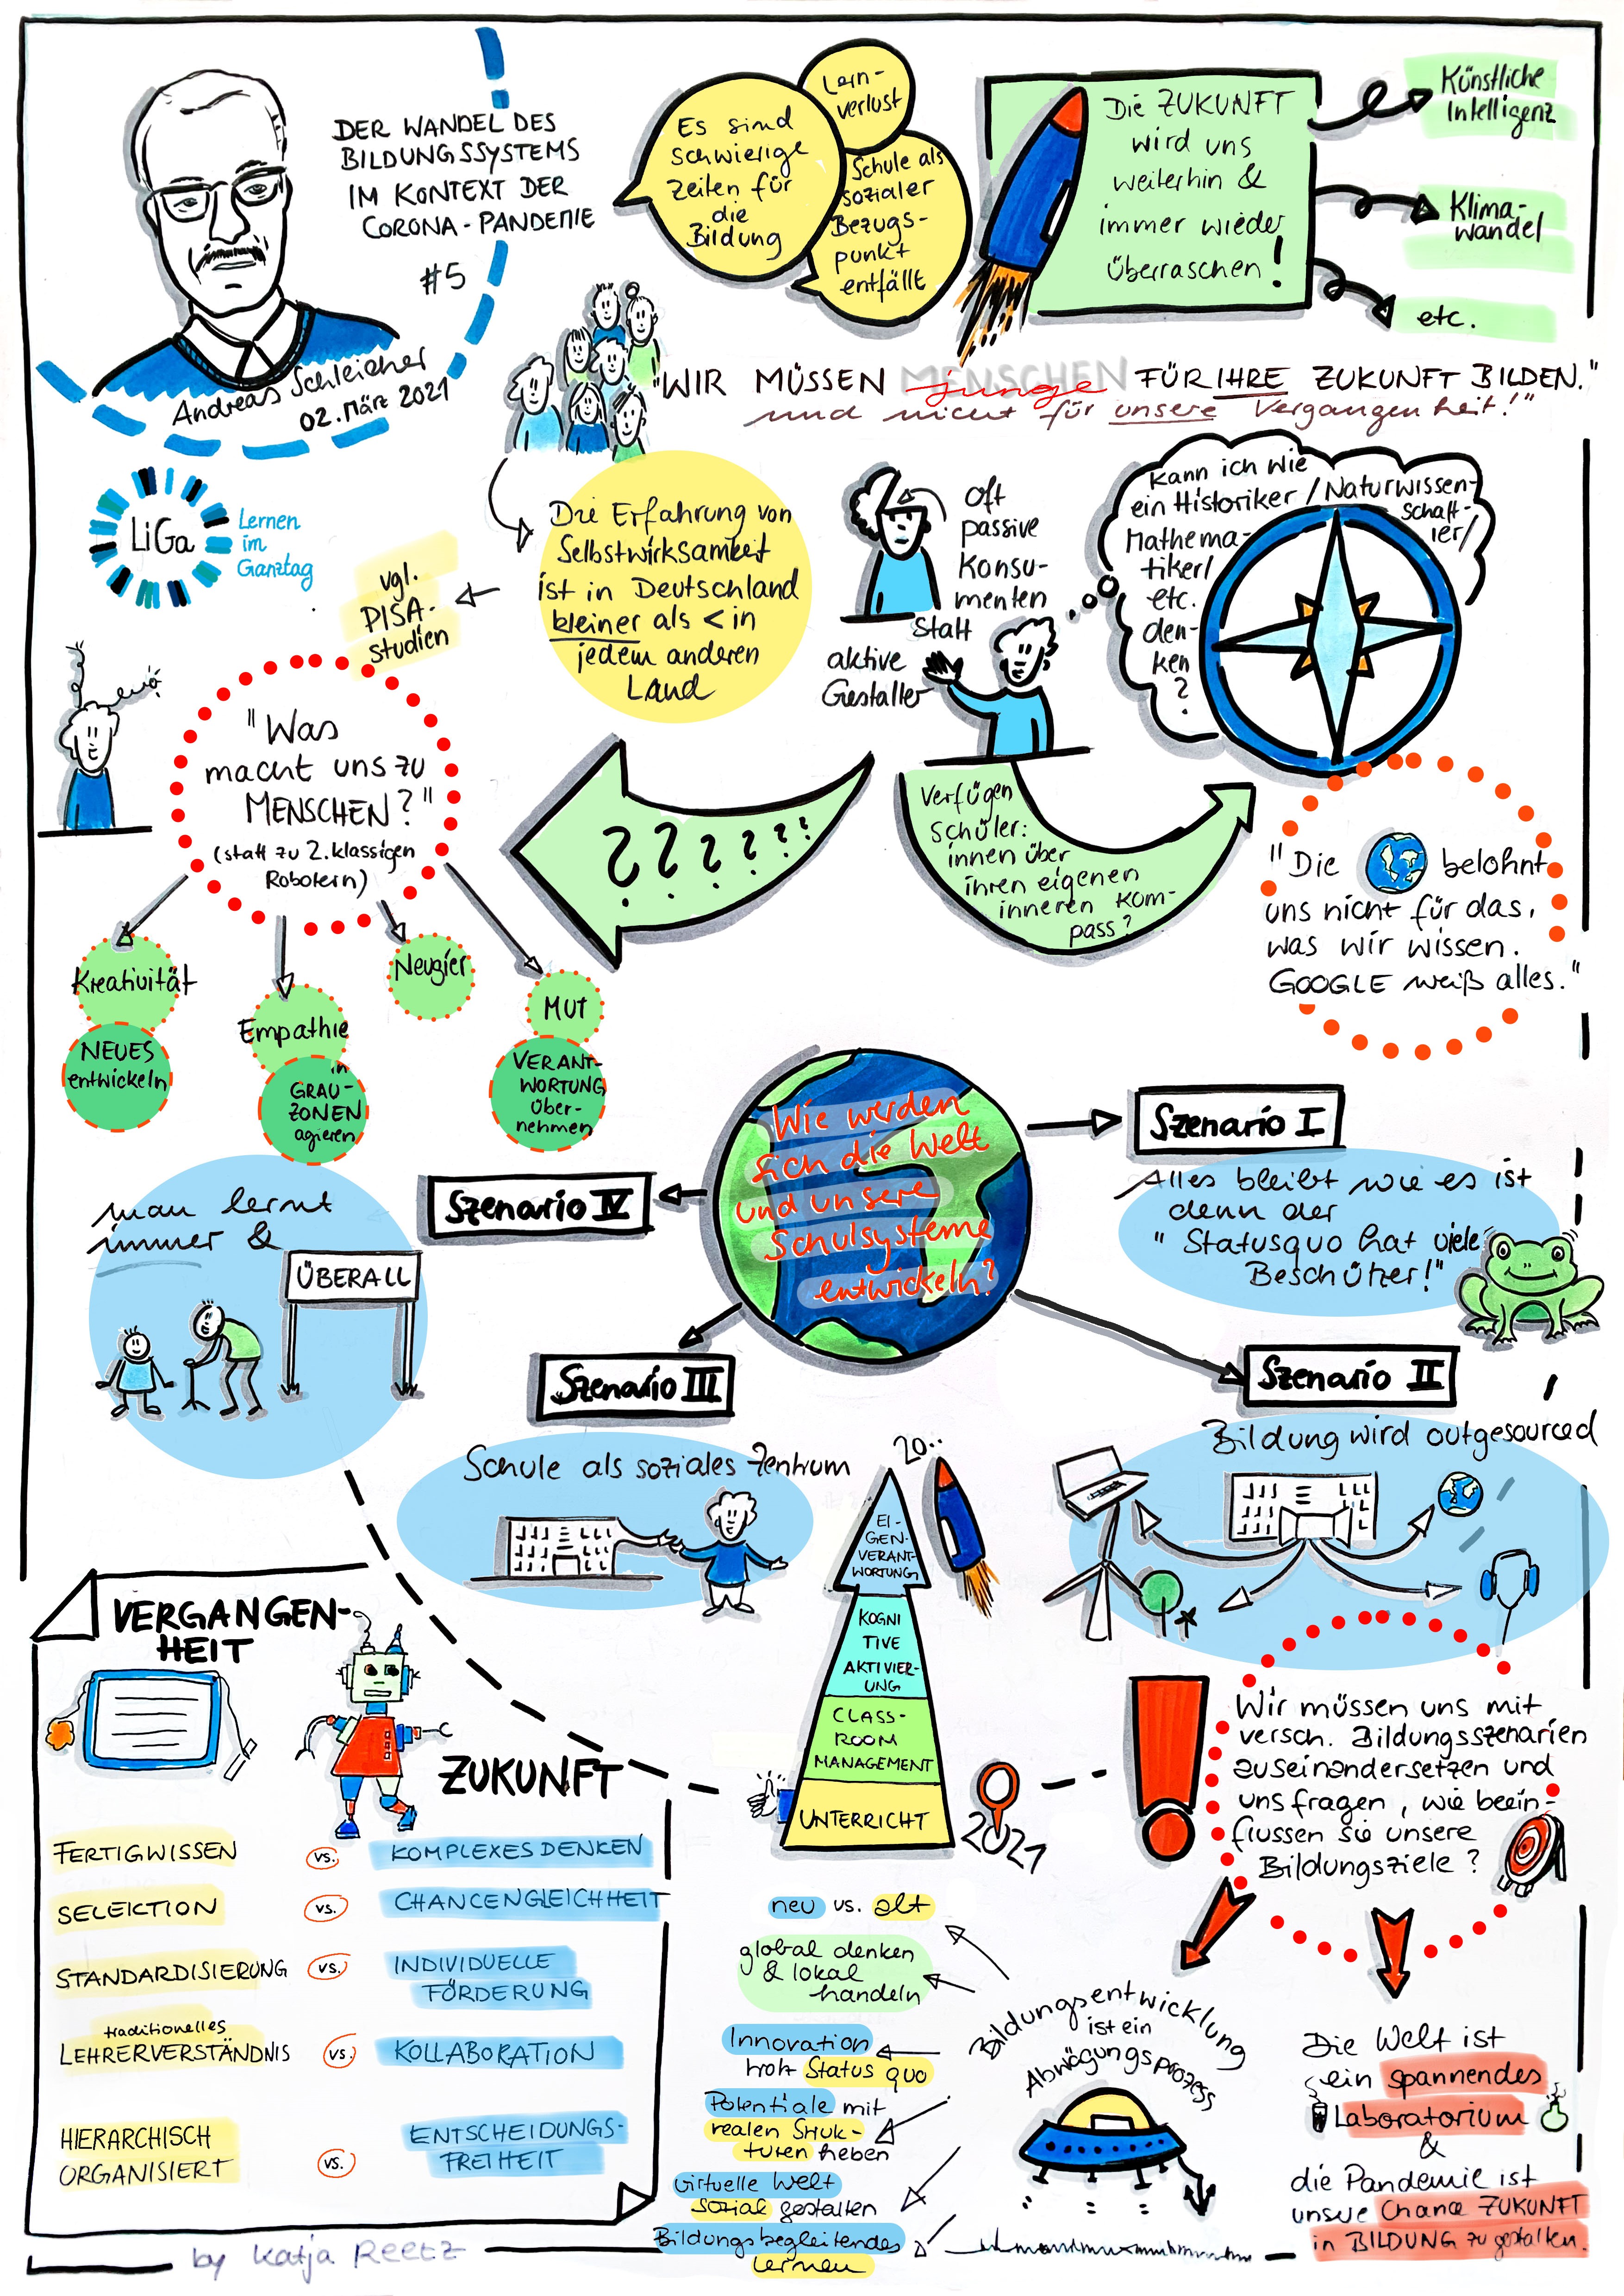 DER WANDEL DES
BILDUNGSSYSTEMS
IM KONTEXT DER
CORONA-PANDEMIE
#5
Andreas Schleicher
02. März 2021
Es sind
schwierige
Zeiten für
die
Bildung
Lern-
verlust
Schule als
sozialer
Bezugs-
punkt
entfällt
Die ZUKUNFT
wird uns
weiterhin &
immer wieder
überraschen!
Künstliche
Intelligenz
Klima-
wandel
etc.
"WIR MÜSSEN MENSCHEN junge FÜR IHRE ZUKUNFT BILDEN."
und nicht für unsere Vergangenheit!"
LiGa
Lernen
im
Ganztag
Die Erfahrung von
Selbstwirksamkeit
ist in Deutschland
kleiner als < in
jedem anderen
Land
vgl.
PISA-
studien
Oft
passive
Konsu-
menten
Statt
aktive
Gestalter
Kann ich wie
ein Historiker / Naturwissen-
schaft-
ler/
Mathema-
tiker/
etc.
den-
ken
?
Verfügen
Schüler:
innen über
ihren eigenen
inneren Kom-
pass?
? ? ? ? ? ?
"Was
macht uns zu
MENSCHEN?"
(statt zu 2. klassigen
Robotern)
"Die belohnt
uns nicht für das,
was wir wissen.
GOOGLE weiß alles."
Kreativität
NEUES
entwickeln
Empathie
in
GRAU-
ZONEN
agieren
Neugier
MUT
VERANT-
WORTUNG
über-
nehmen
Wie werden
sich die Welt
und unsere
Schulsysteme
entwickeln?
Szenario I
Alles bleibt wie es ist
denn der
"Statusquo hat viele
Beschützer!"
Szenario II
Bildung wird outgesourced
Szenario III
Schule als soziales Zentrum
Szenario IV
man lernt
immer &
ÜBERALL
20..
EI-
GEN-
VERANT-
WORTUNG
KOGNI
TIVE
AKTIVIER-
UNG
CLASS-
ROOM
MANAGEMENT
UNTERRICHT
2021
VERGANGEN-
HEIT
ZUKUNFT
FERTIGWISSEN vs. KOMPLEXES DENKEN
SELEKTION vs. CHANCENGLEICHHEIT
STANDARDISIERUNG vs. INDIVIDUELLE
FÖRDERUNG
traditionelles
LEHRERVERSTÄNDNIS vs. KOLLABORATION
HIERARCHISCH
ORGANISIERT
vs.
ENTSCHEIDUNGS-
FREIHEIT
Wir müssen uns mit
versch. Bildungsszenarien
auseinandersetzen und
uns fragen, wie beein-
flussen sie unsere
Bildungsziele?
Bildungsentwicklung
ist ein
Abwägungsprozess
neu vs. alt
global denken
& lokal
handeln
Innovation
trotz Status quo
Potentiale mit
realen Struk-
turen heben
virtuelle Welt
sozial gestalten
Bildungsbegleitendes
Lernen
Die Welt ist
ein spannendes
Laboratorium
&
die Pandemie ist
unsere Chance ZUKUNFT
in BILDUNG zu gestalten.
by Katja Reetz